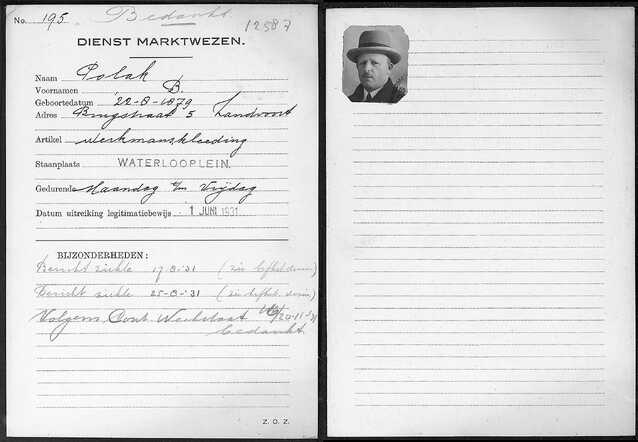 No. 195 Bedankt 12587
DIENST MARKTWEZEN.
Naam Polak
Voornamen B.
Geboortedatum 22-8-1879
Adres Ringstraat 5 Zandvoort
Artikel Werkmanskleeding
Staanplaats WATERLOOPLEIN.
Gedurende Maandag t/m Vrijdag
Datum uitreiking legitimatiebewijs 1 JUNI 1931
BIJZONDERHEDEN:
Bericht ziekte 17-8-'31 (zie
Bericht ziekte 25-8-'31 (zie
Volgens Cont. 20-11-31
bedankt.
Z. O. Z.